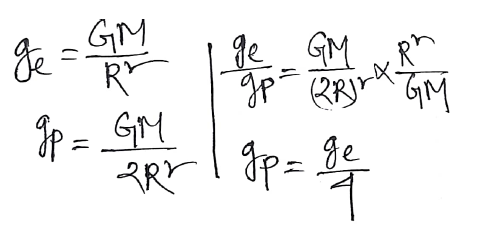 gₑ = GM/Rʳ
gₚ = GM/2Rʳ
gₑ/gₚ = GM/(2R)ʳ × Rʳ/GM
gₚ = gₑ/4